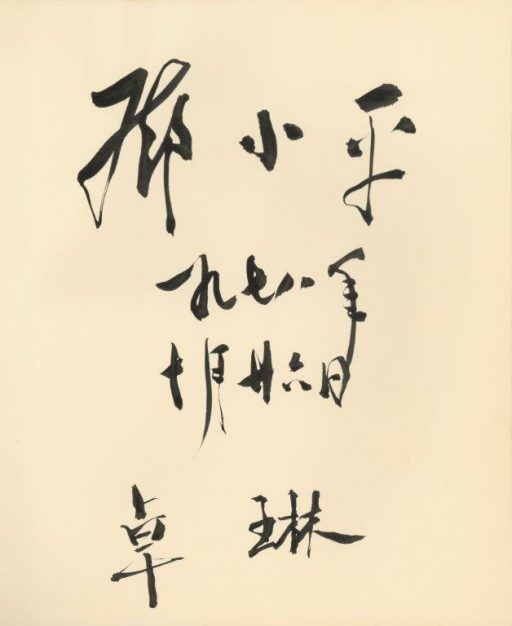 邓小平
一九七八年
十月廿六日
卓琳